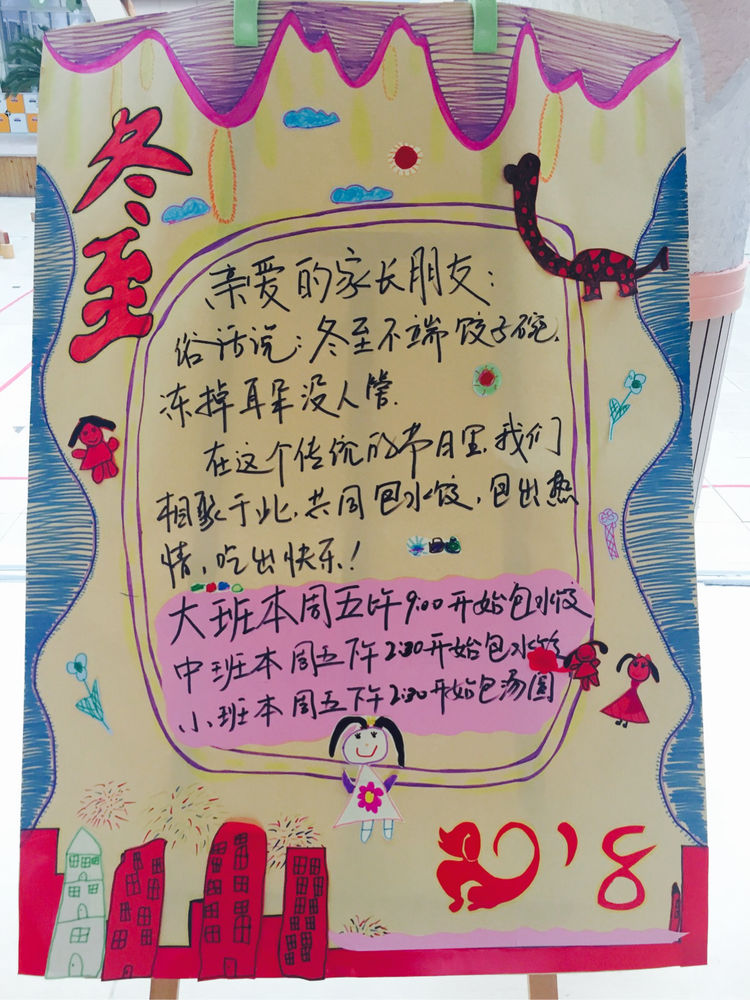 冬至
亲爱的家长朋友:
俗话说:冬至不端饺子碗,
冻掉耳朵没人管.
在这个传统的节日里,我们
相聚于此,共同包水饺,包出热
情,吃出快乐!
大班本周五上午9:00开始包水饺
中班本周五下午2:30开始包水饺
小班本周五下午2:30开始包汤圆
2018